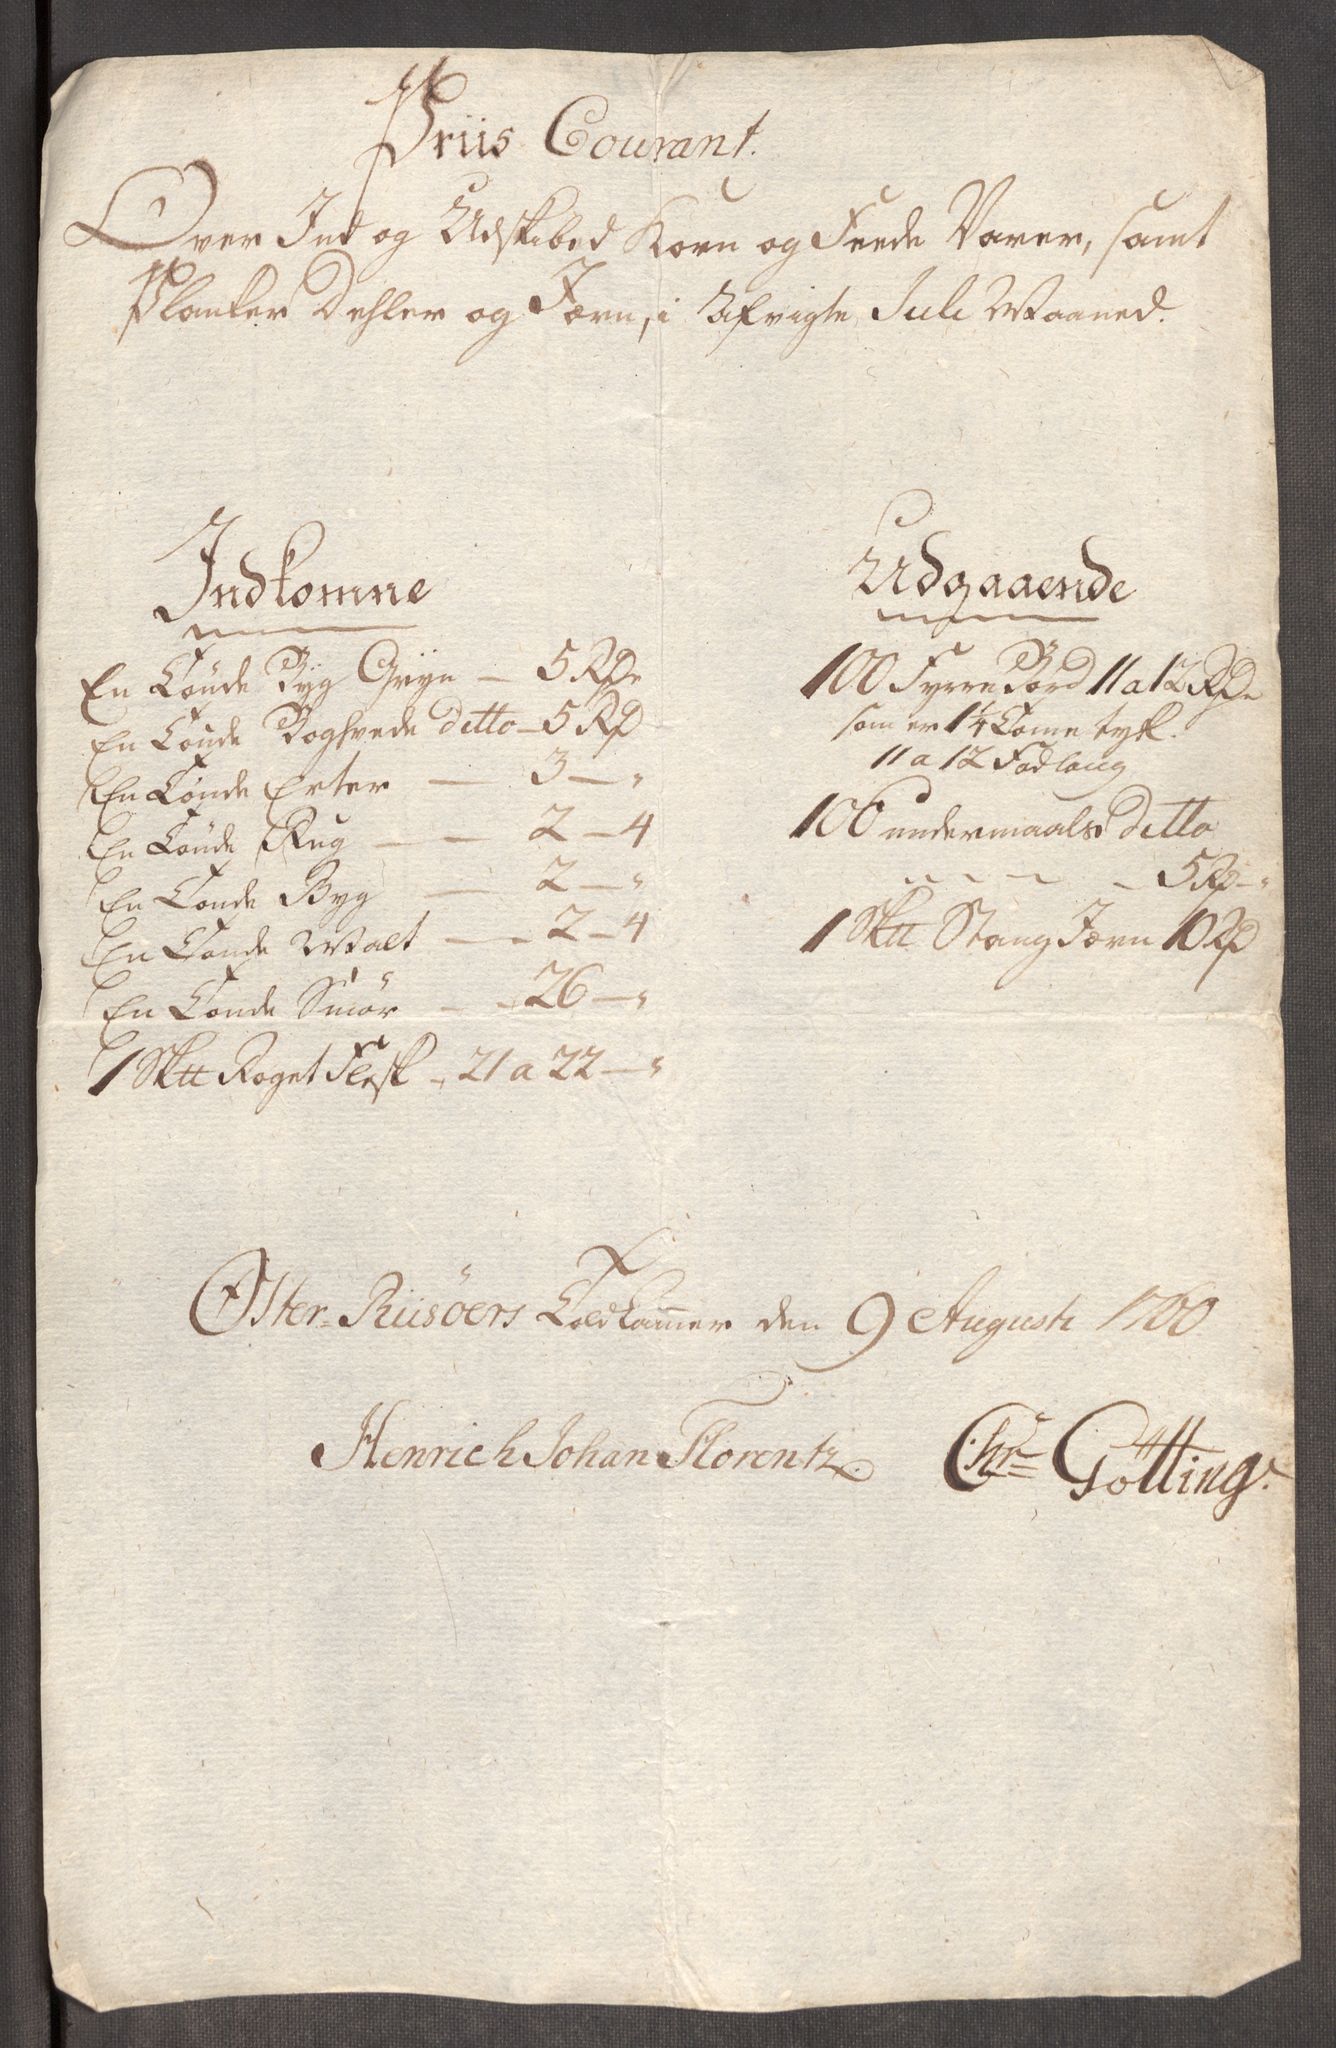 Priis Courant.
Over Ind og Udskibed Korn og Feede Varer, samt
Planker Dehler og Jærn, i Afvigte Juli Maaned.
Indkomne
En Tønde Byg Gryn — 5 Rd
En Tønde Boghvede ditto — 5 Rd
En Tønde Erter — 3 — "
En Tønde Rug — 2 — 4
En Tønde Byg — 2 — "
En Tønde Malt — 2 — 4
En Tønde Smör — 26 — "
1 Sktt Røget Flesk — 21 a 22 — "
Udgaaende
100 Fyrre Bord 11 a 12 Rd
som er 1¼ Tomme tyk.
11 a 12 Fod lang
100 undermaals ditto
— 5 Rd — "
1 Sktt Stang Jærn 10 Rd
Øster-Riisöers Toldkammer den 9 Augusti 1760
Henrich Johan Florentz Chr: Götting.